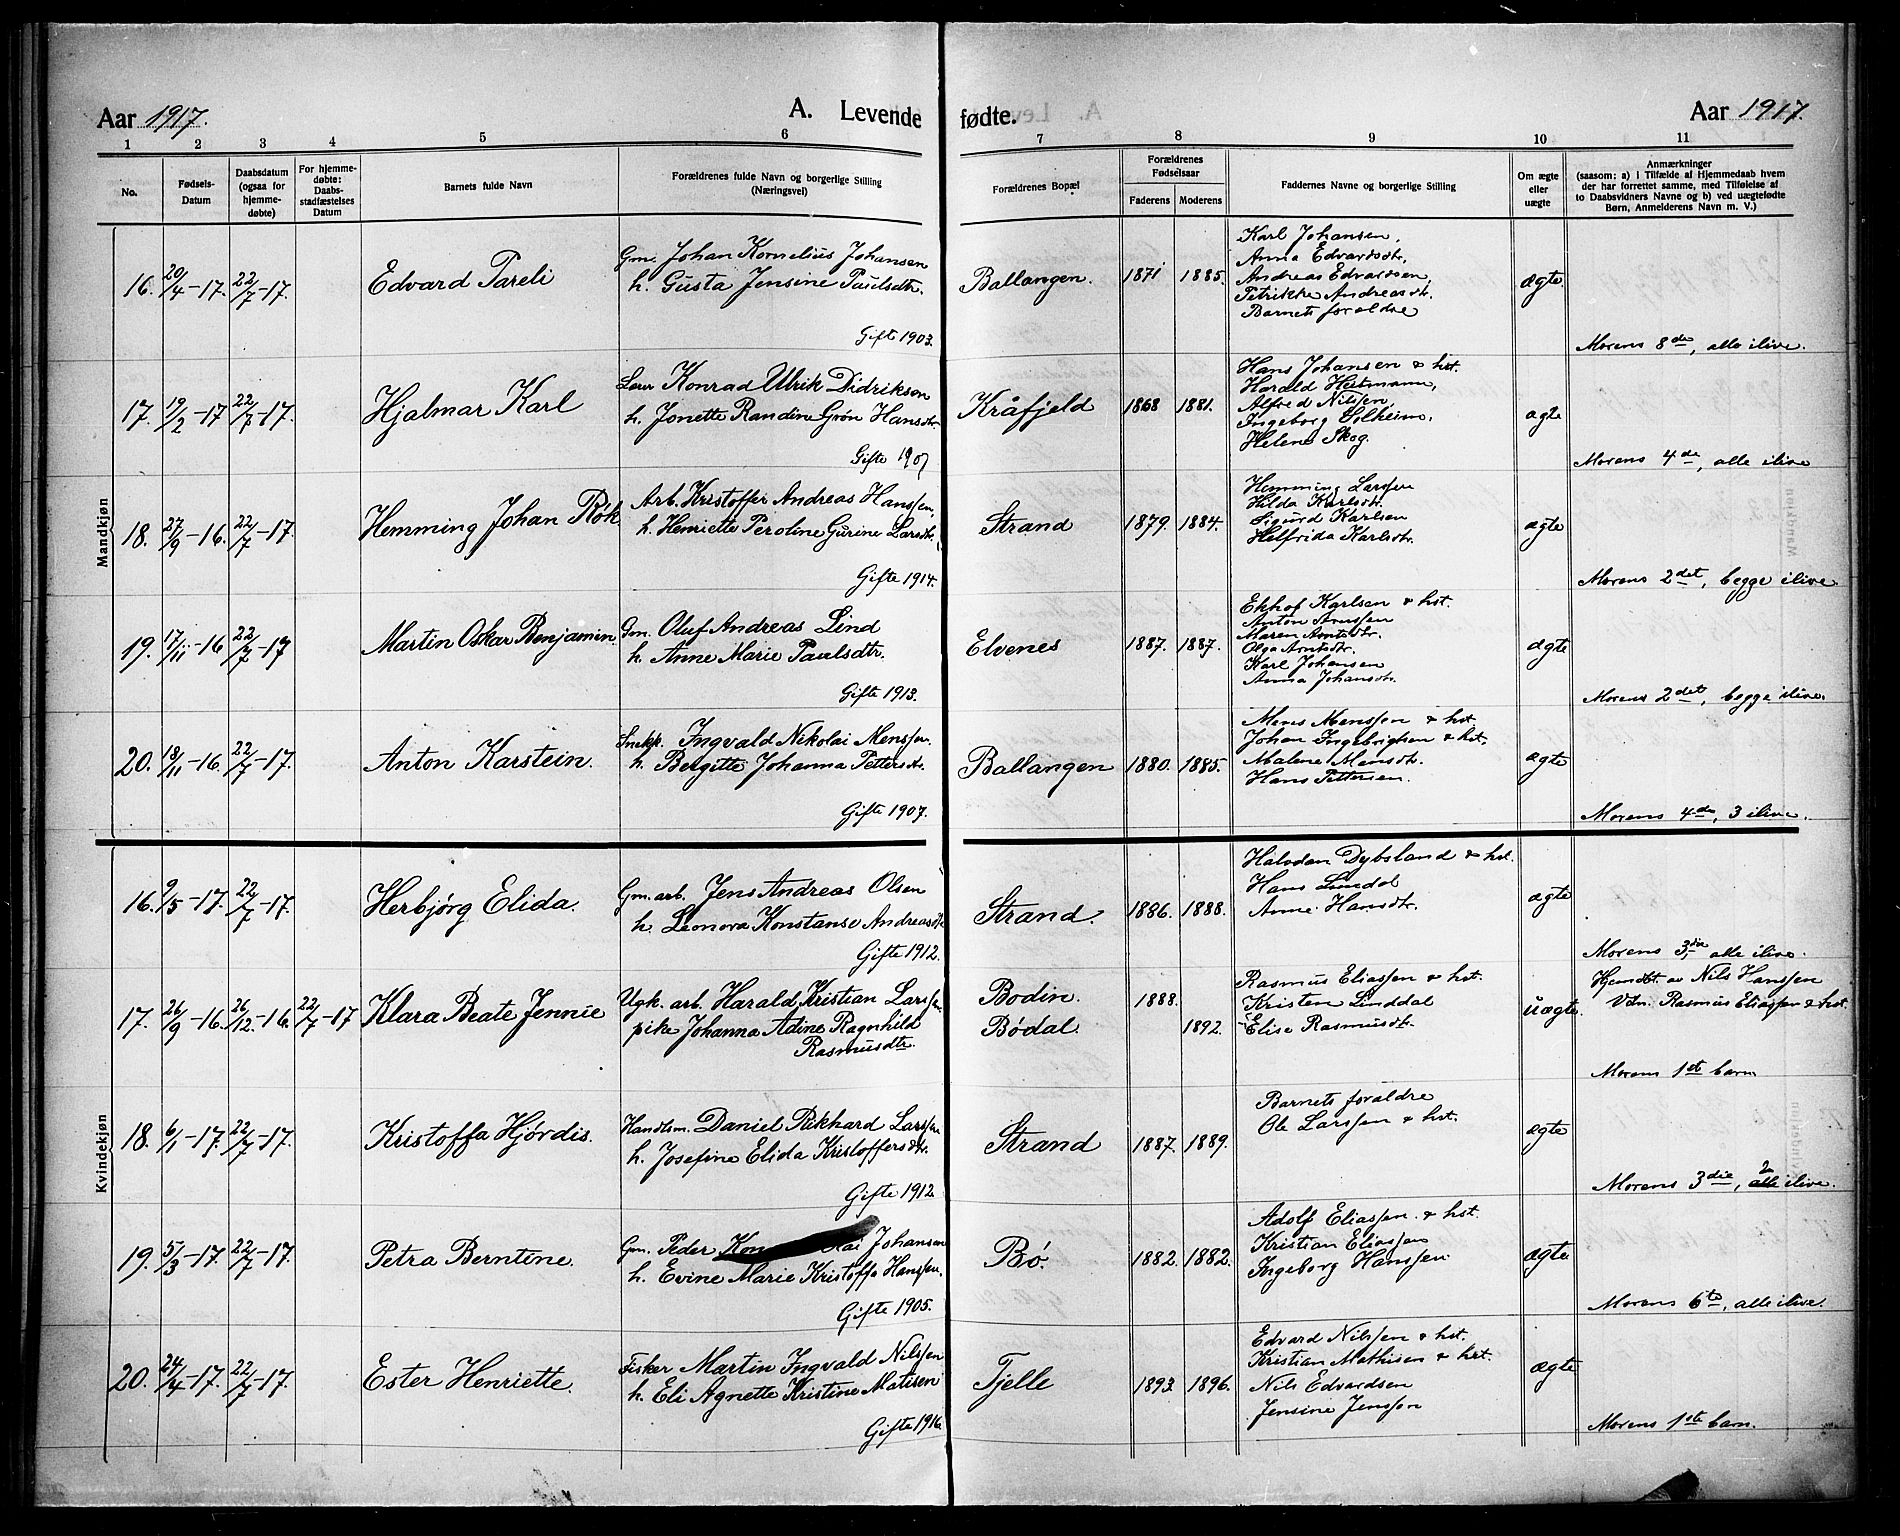 Aar 1917.
A. Levende fødte.
Aar 1917.
1 2 3 4 5 6 7 8 9 10 11
No.
Fødsels-
Datum
Daabsdatum
(ogsaa for
hjemme-
døbte)
For hjemme-
døbte:
Daabs-
stadfæstelses
Datum
Barnets fulde Navn
Forældrenes fulde Navn og borgerlige Stilling
(Næringsvei)
Forældrenes Bopæl
Forældrenes
Fødselsaar
Faderens
Moderens
Faddernes Navne og borgerlige Stilling
Om ægte
eller
uægte
Anmærkninger
(saasom: a) i Tilfælde af Hjemmedaab hvem
der har forrettet samme, med Tilføielse af
to Daabsvidners Navne og b) ved uægtefødte
Børn, Anmelderens Navn m. V.)
Mandkjøn
16. 20/4-17. 22/7-17. Edvard Pareli
Gm. Johan Kornelius Johansen
h. Gusta Jensine Paulsdtr.
Gift 1903.
Ballangen. 1871 1885.
Karl Johansen,
Anna Edvardsdtr,
Andreas Edvardsen,
Petrikke Andreasdtr.
Barnets forældre
ægte.
Morens 8de, alle ilive.
17. 19/2-17 22/7-17. Hjalmar Karl
Lærer Konrad Ulrik Didrikson
h. Jonette Randine Grøn Hansdtr.
Gifte 1907
Kråfjeld 1868 1881.
Hans Johansen & hst.
Harald Hestmann,
Alfred Nilsen,
Ingeborg Solheim,
Helene Skog.
ægte
Morens 4de, alle ilive
18. 27/9-16. 22/7-17. Hemming Johan Røk
Arb. Kristoffer Andreas Hanssen,
h. Henriette Peroline Gurine Larsdtr.
Gifte 1914.
Strand 1879. 1884.
Hemming Larssen
Hilda Karlsdtr.
Sigurd Karlsen
Helfrida Karlsdtr.
ægte
Morens 2det, begge ilive.
19. 17/11-16 22/7-17 Martin Oskar Benjamin
Gm. Oluf Andreas Lind
h. Anne Marie Paulsdtr.
Gifte 1913.
Elvenes 1887. 1887.
Ekhof Karlsen & hst.
Anton Arnssen
Maren Arntsdtr.
Olga Arntsdtr.
Karl Johansen
Anna Johansdtr.
ægte
Morens 2det, begge ilive.
20. 18/11-16. 22/7-17. Anton Karstein.
Snekk. Ingvald Nikolai Menssen.
h. Bergitte Johanna Pettersdtr.
Gifte 1907.
Ballangen 1880. 1885.
Mens Menssen & hst
Johan Ingebrigtsen & hst,
Malene Mensdtr.
Hans Pettersen.
ægte
Morens 4de, 3 ilive.
Kvindekjøn
16. 9/5-17. 22/7-17. Herbjørg Elida.
Gm. arb. Jens Andreas Olsen
h. Leonora Konstanse Andreasdtr
Gifte 1912.
Strand. 1886. 1888.
Halvdan Dybsland & hst.
Hans Lindal
Anne Hansdtr.
ægte
Morens 3die, alle ilive.
17. 26/9-16. 26/12-16. 22/7-17 Klara Beate Jennie
Ugk. arb. Harald Kristian Larssen
pike Johanna Adine Ragnhild
Rasmusdtr.
Bodin. 1888.
Bødal. 1892.
Rasmus Eliassen & hst.
Kristen Linddal
Elise Rasmusdtr.
uægte
Hjemdbt. av Nils Hanssen
Vdn. Rasmus Eliassen & hst.
Morens 1ste barn
18. 6/1-17. 22/7-17. Kristoffa Hjørdis.
Handlsm. Daniel Rikhard Larssen
h. Josefine Elida Kristoffersdtr.
Gifte 1912
Strand 1887. 1889.
Barnets forældre
Ole Larssen & hst.
ægte
Morens 3die, 2 alle ilive.
19. 5/3-17. 22/7-17. Petra Berntine.
Gm. Peder Johansen
h. Evine Marie Kristoffa Hanssen.
Gifte 1905.
Bø. 1882. 1882.
Adolf Eliassen. & hst.
Kristian Eliassen
Ingeborg Hanssen
ægte
Morens 6te, alle ilive.
20. 24/4-17. 22/7-17. Ester Henriette.
Fisker Martin Ingvald Nilssen
h. Eli Agnette Kristine Matisen
Gifte 1916
Tjelle 1893. 1896.
Edvard Nilssen & hst.
Kristian Mathisen & hst.
Nils Edvardsen
Jensine Jenssen
ægte
Morens 1ste barn.